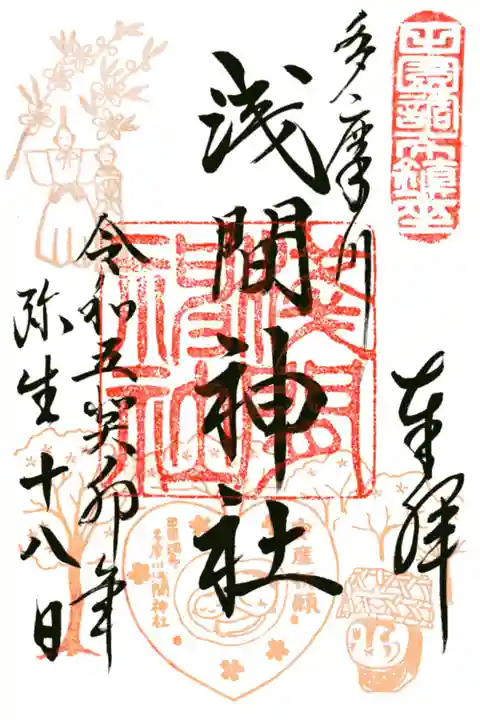 田園調布鎮座
奉拝
多摩川
浅間神社
浅間
神社
令和五癸卯年
弥生十八日
安産祈願
田園調布
多摩川浅間神社